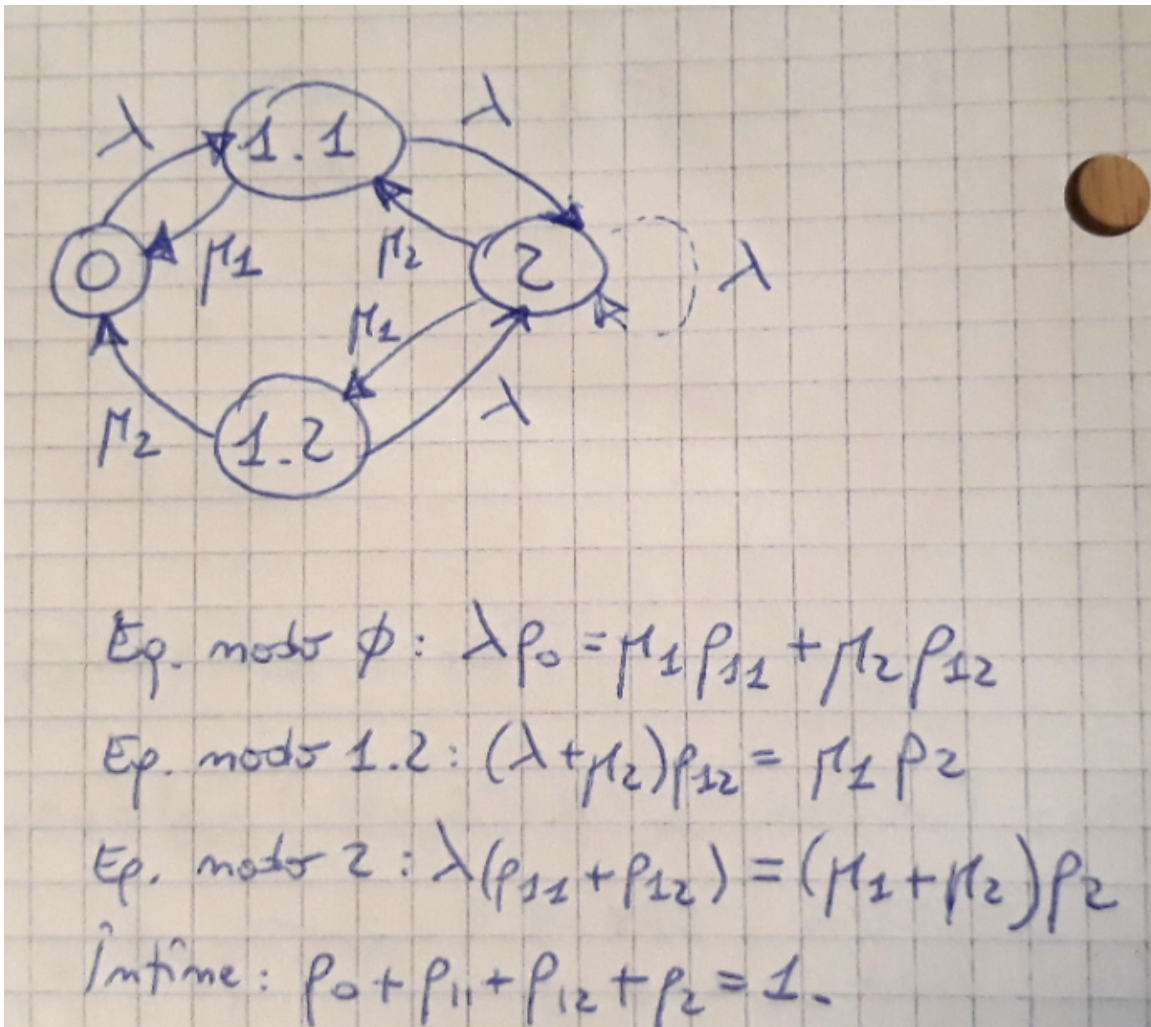 λ λ
1.1
0 μ1 μ2 2 λ
μ1
μ2 1.2 λ
Eq. nodo ϕ: λp0 = μ1p11 + μ2p12
Eq. nodo 1.2: (λ+μ2)p12 = μ1p2
Eq. nodo 2: λ(p11+p12) = (μ1+μ2)p2
Înfine: p0+p11+p12+p2 = 1.